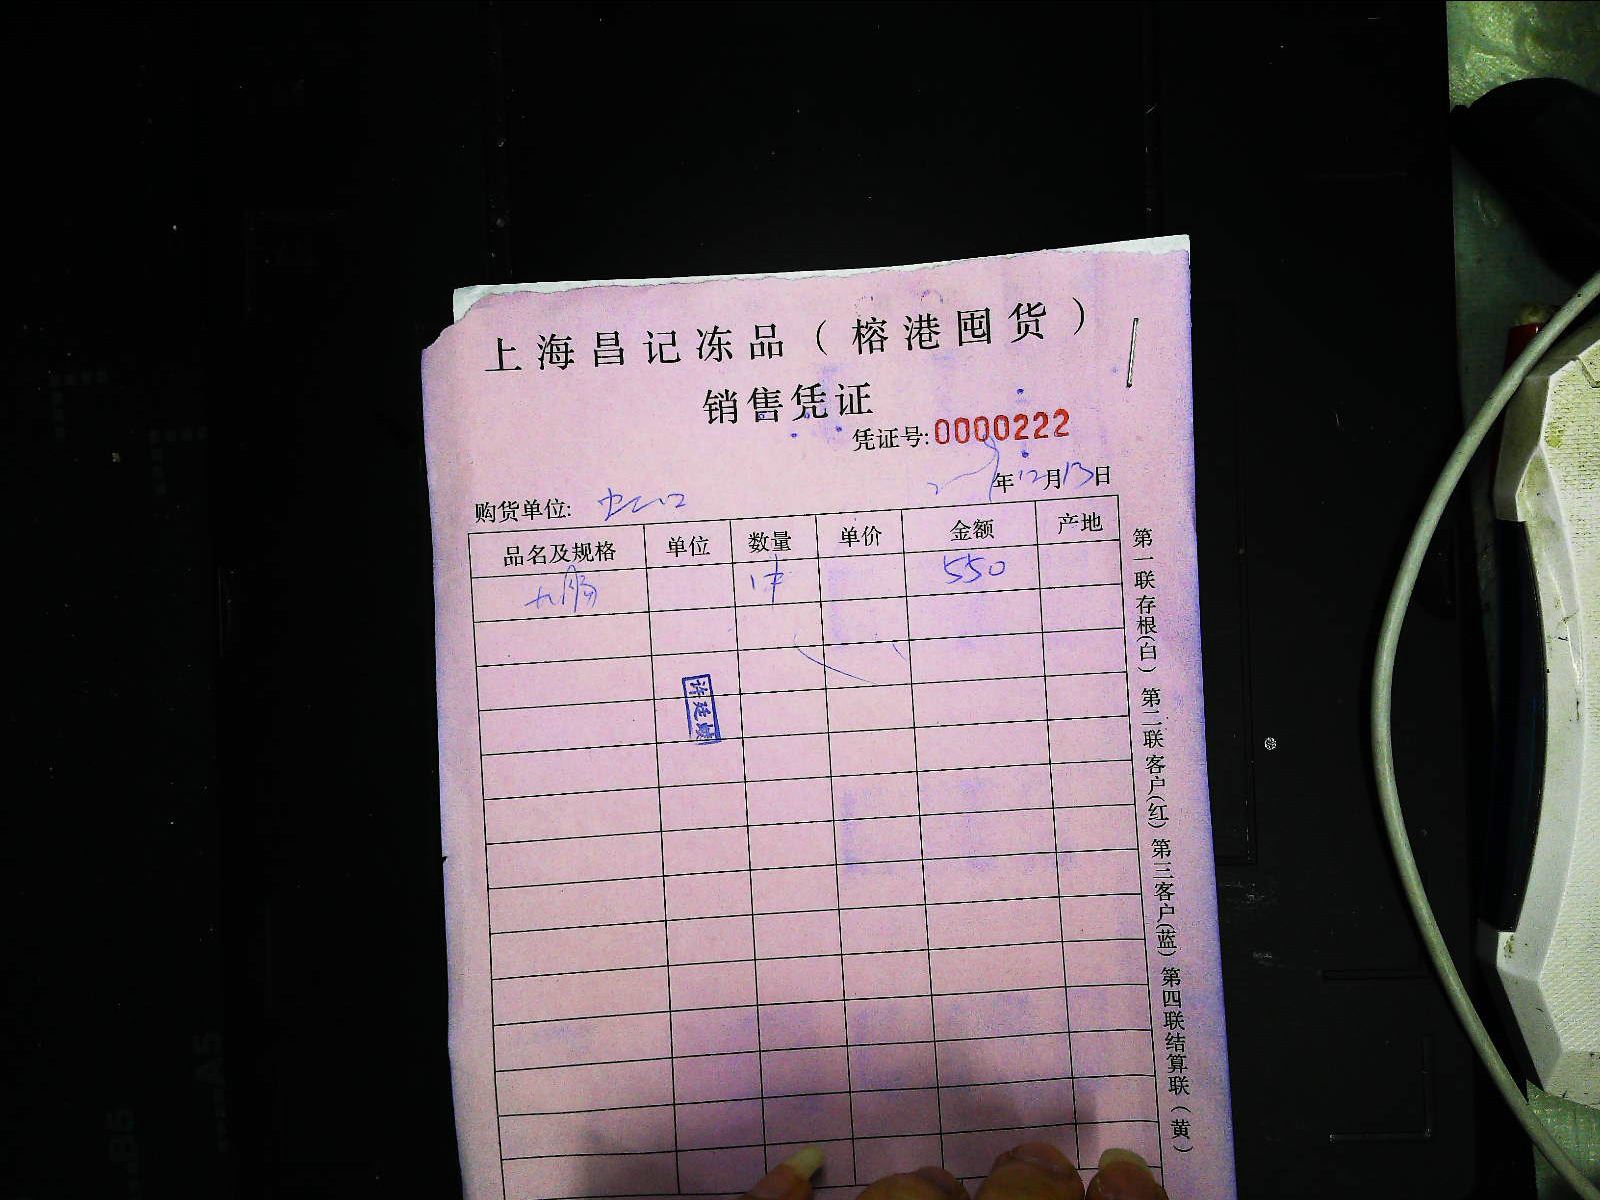 上海昌记冻品（榕港囤货）
销售凭证
凭证号:0000222
年12月13日
购货单位:
品名及规格 单位 数量 单价 金额 产地
1件 550
许廷
第一联存根(白) 第二联客户(红) 第三客户(蓝) 第四联结算联(黄)